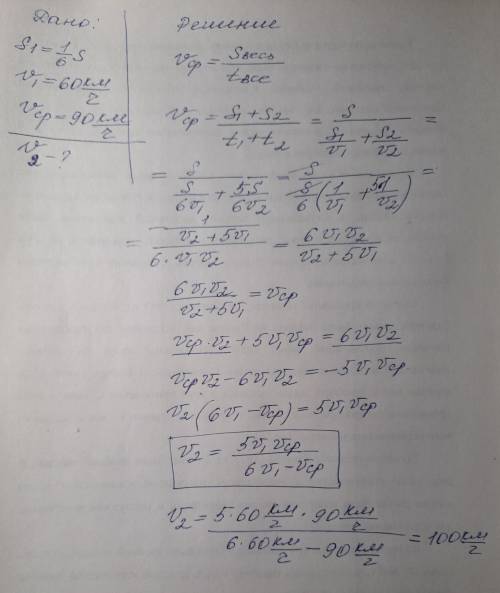 Дано:
S₁ = 1/6 S
v₁ = 60 км/г
vср = 90 км/г
v₂ - ?
Решение
vср = Sвесь / tвсе
vср = (S₁ + S₂) / (t₁ + t₂) = S / (S₁/v₁ + S₂/v₂) =
= S / (S/6v₁ + 5S/6v₂) = S / (S/6 (1/v₁ + 5·1/v₂)) =
= 1 / ((v₂ + 5v₁) / (6·v₁v₂)) = 6v₁v₂ / (v₂ + 5v₁)
6v₁v₂ / (v₂ + 5v₁) = vср
vср·v₂ + 5v₁vср = 6v₁v₂
vсрv₂ - 6v₁v₂ = -5v₁vср
v₂(6v₁ - vср) = 5v₁vср
v₂ = 5v₁vср / (6v₁ - vср)
v₂ = (5·60 км/г · 90 км/г) / (6·60 км/г - 90 км/г) = 100 км/г